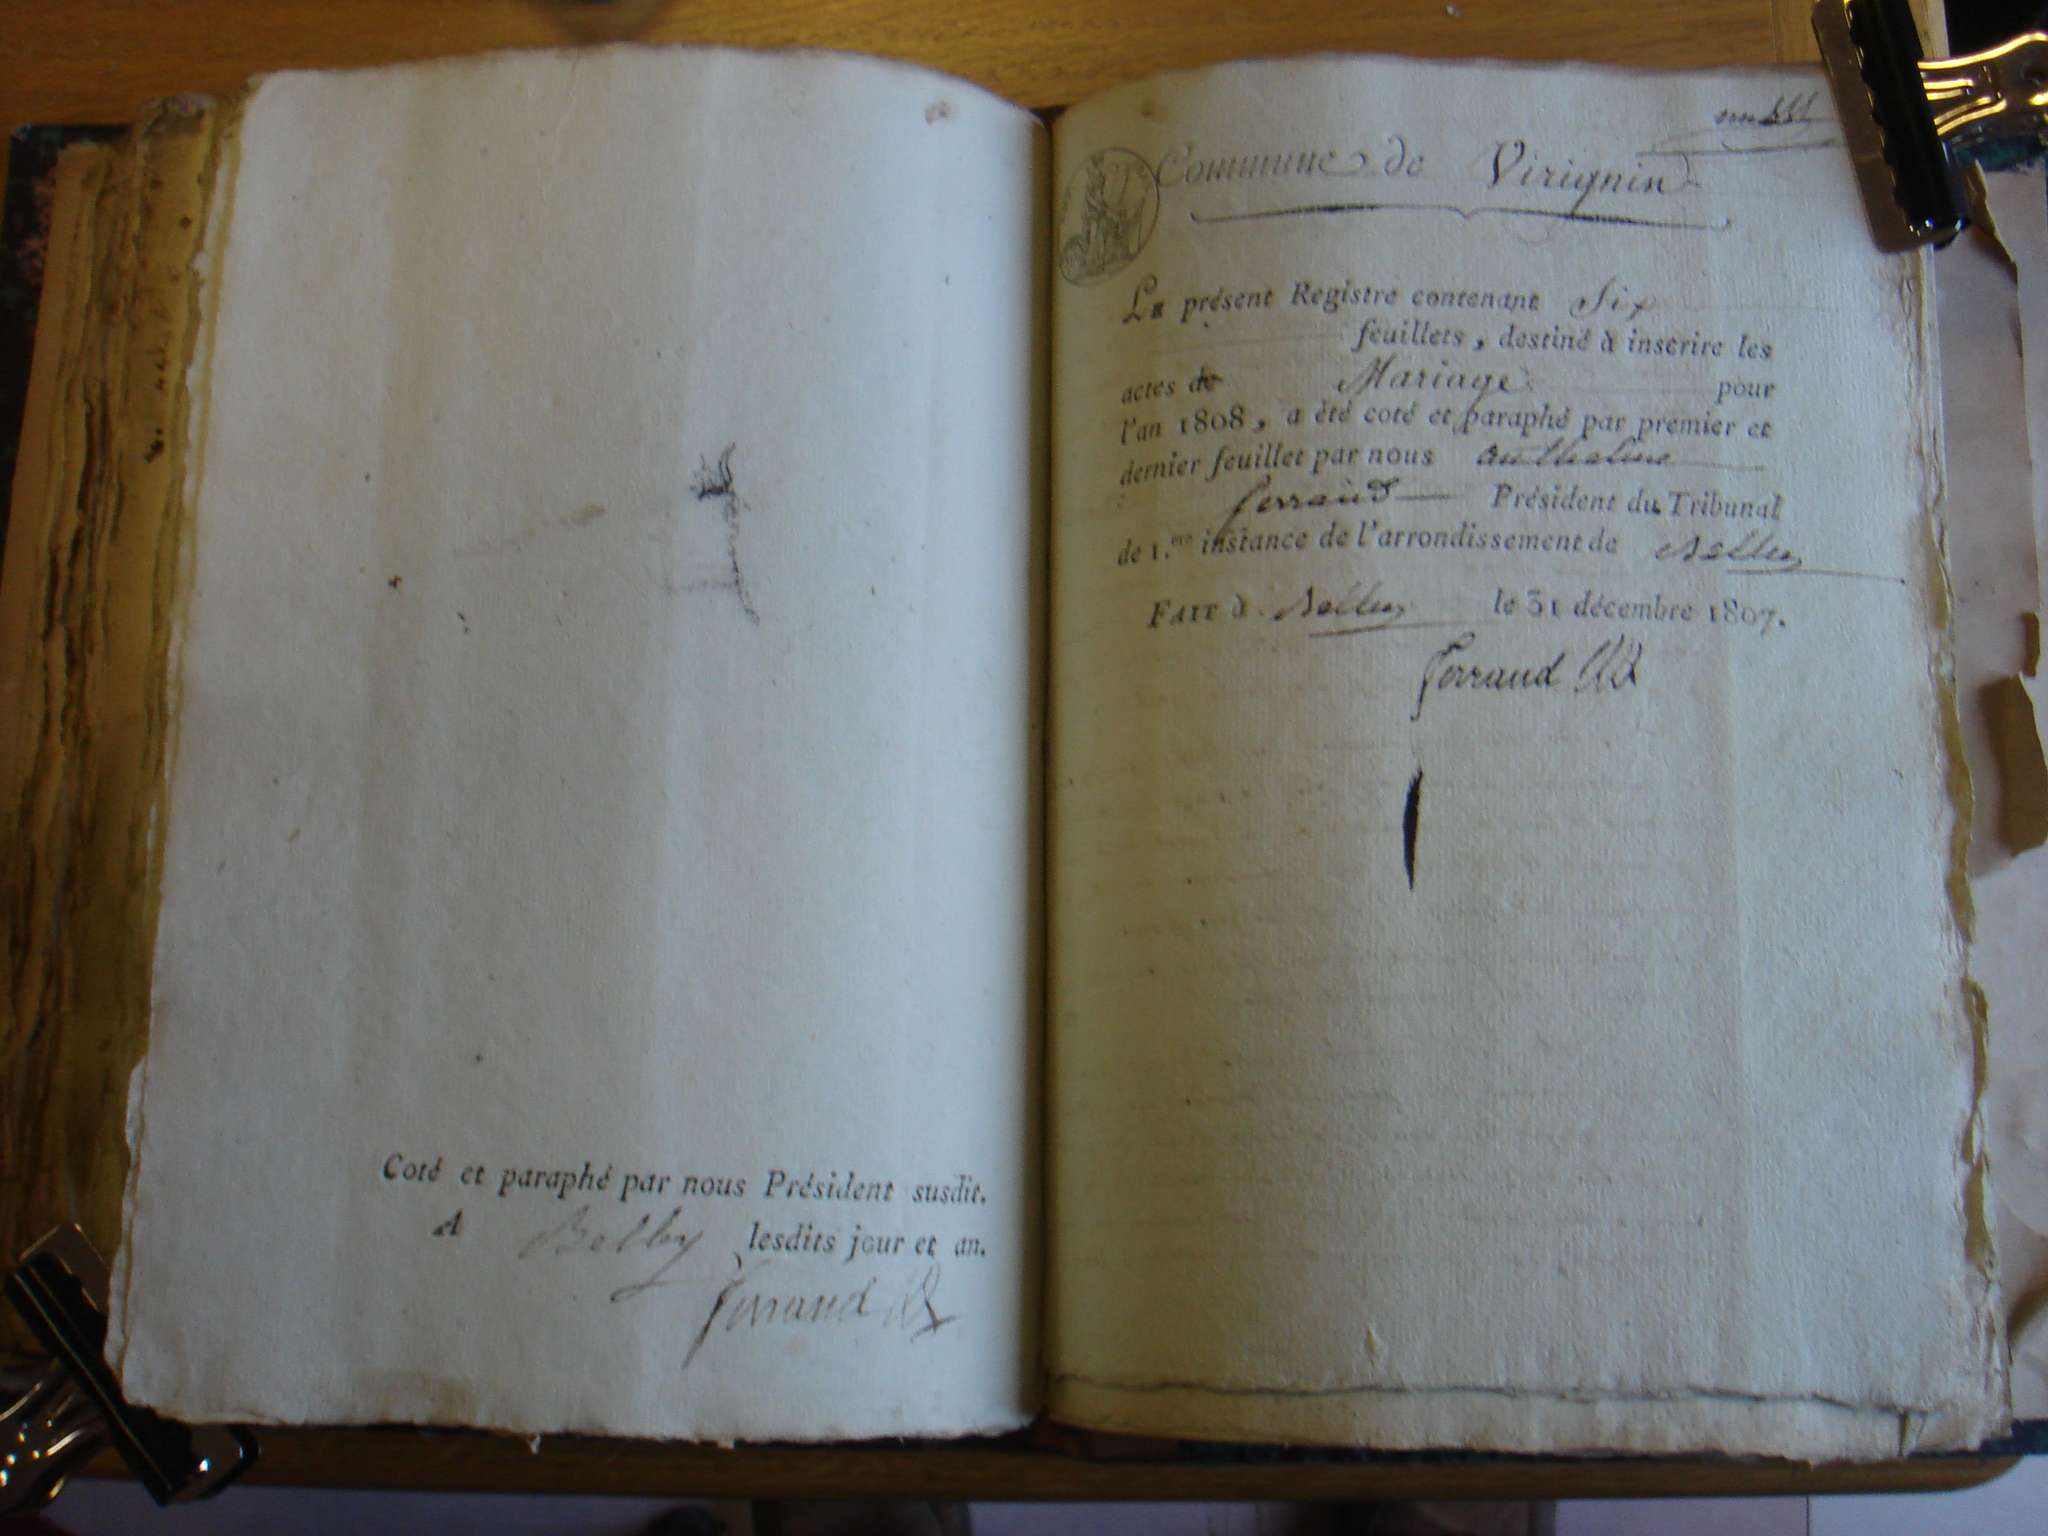 Coté et paraphé par nous Président susdit.
A Belley lesdits jour et an.
Ferrand
Commune de Virignin
Le présent Registre contenant Six
feuillets, destiné à inscrire les
actes de Mariage pour
l'an 1808, a été coté et paraphé par premier et
dernier feuillet par nous anthelme
ferrand Président du Tribunal
de 1.ere instance de l'arrondissement de Belley
FAIT à Belley le 31 décembre 1807.
Ferrand